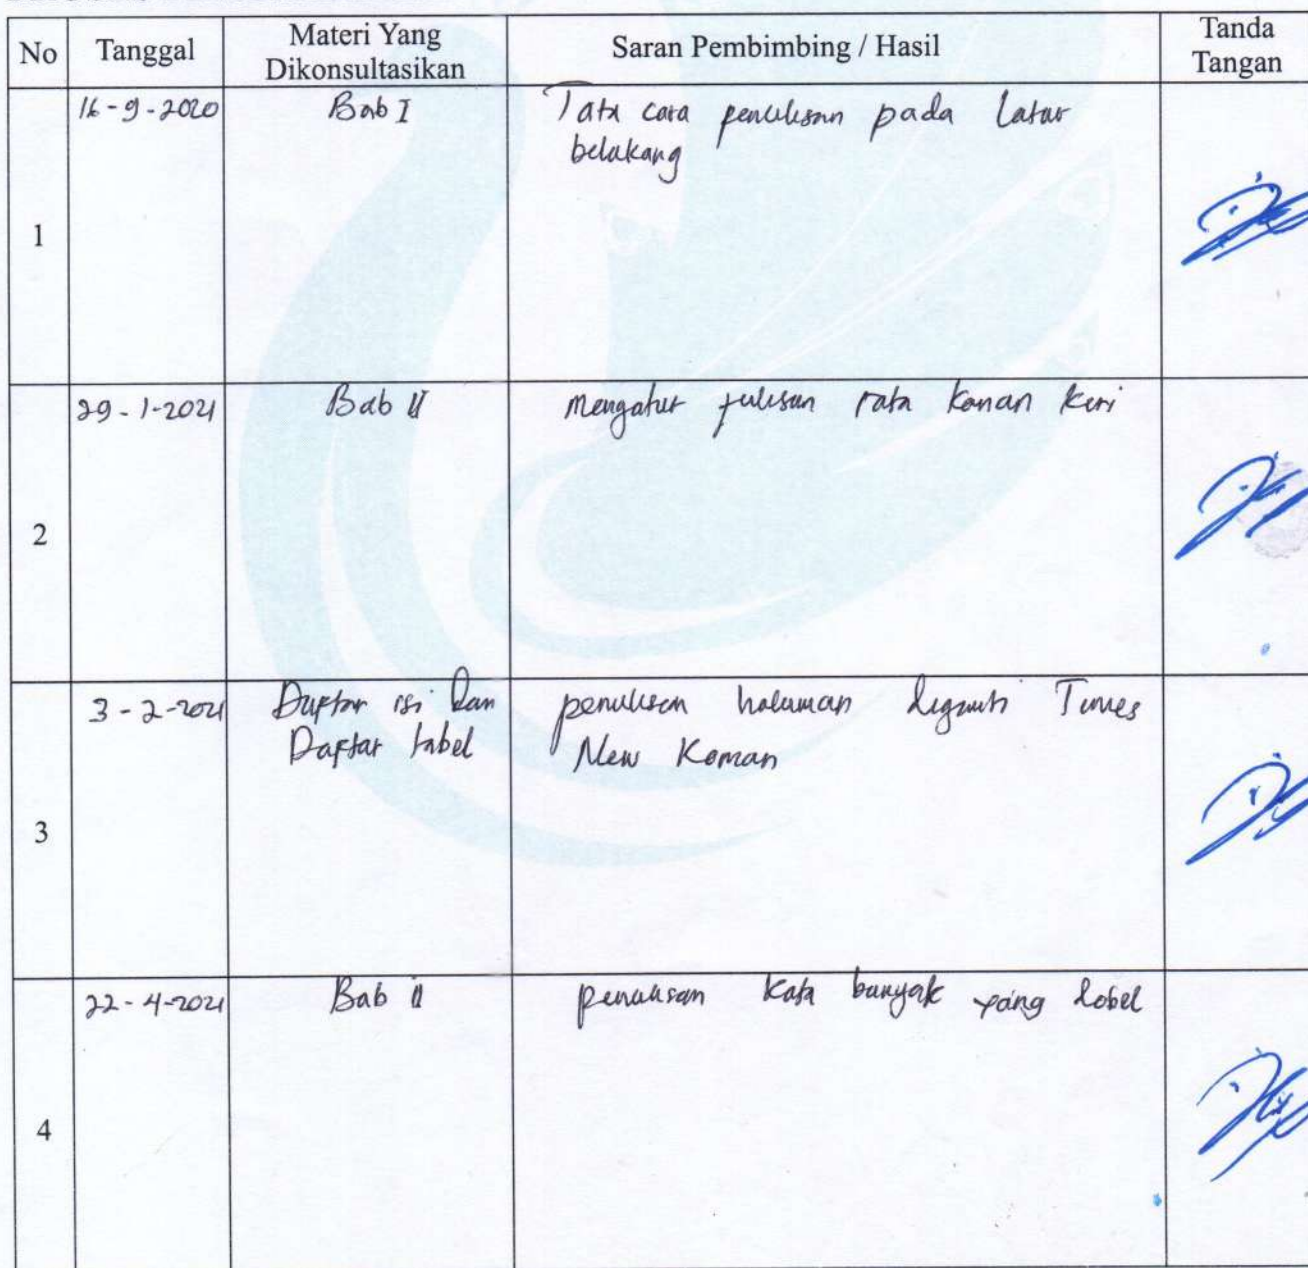 No Tanggal Materi Yang Dikonsultasikan Saran Pembimbing / Hasil Tanda Tangan
1 16-9-2020 Bab I Tata cara penulisan pada Latar
belakang
2 29-1-2021 Bab II Mengatur tulisan rata kanan kiri
3 3-2-2021 Daftar isi dan penulisan halaman diganti Times
Daftar tabel New Roman
4 22-4-2021 Bab II penulisan kata banyak yang dobel